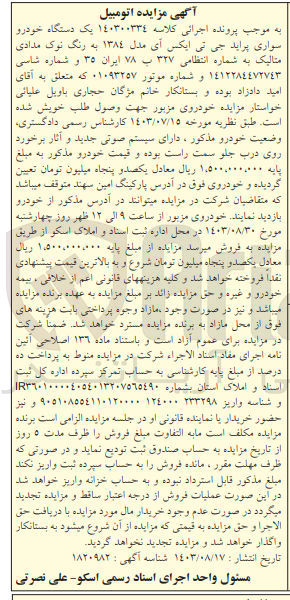 آگهی مزایده اتومبیل
به موجب پرونده اجرائی کلاسه ۱۴۰۳۰۰۳۳۴ یک دستگاه خودرو
سواری پراید جی تی ایکس آی مدل ۱۳۸۴ به رنگ نوک مدادی
متالیک به شماره انتظامی ۳۲۷ ب ۷۸ ایران ۳۵ و شماره شاسی
۱۴۱۲۲۸۴۴۷۲۷۴۳ و شماره موتور ۰۱۰۹۳۲۵۷ که متعلق به آقای
امید دادزاد بوده و بستانکار خانم مژگان حجاری باویل علیائی
خواستار مزایده خودروی مزبور جهت وصول طلب خویش شده
است. طبق نظریه مورخه ۱۴۰۳/۰۷/۱۵ کارشناس رسمی دادگستری،
وضعیت خودرو مذکور ، دارای سیستم صوتی جدید و آثار برخورد
روی درب جلو سمت راست بوده و قیمت خودرو مذکور به مبلغ
۱،۵۰۰،۰۰۰،۰۰۰ ریال معادل یکصدو پنجاه میلیون تومان تعیین
گردیده و خودروی فوق در آدرس پارکینگ امین سهند متوقف میباشد
که متقاضیان شرکت در مزایده میتوانند در آدرس مذکور از خودرو
بازدید نمایند. خودروی مزبور از ساعت ۹ الی ۱۲ ظهر روز چهارشنبه
مورخ ۱۴۰۳/۰۸/۳۰ در محل اداره ثبت اسناد و املاک اسکو از طریق
مزایده به فروش میرسد مزایده از مبلغ پایه ۱،۵۰۰،۰۰۰،۰۰۰ ریال
معادل یکصدو پنجاه میلیون تومان شروع و به بالاترین قیمت پیشنهادی
نقداً فروخته خواهد شد و کلیه هزینههای قانونی اعم از خلافی ، بیمه
خودرو و غیره و حق مزایده زائد بر مبلغ مزایده به عهده برنده مزایده
میباشد و نیز در صورت وجود ،مازاد وجوه پرداختی بابت هزینه های
فوق از محل مازاد به برنده مزایده مسترد خواهد شد. ضمنا شرکت
در مزایده برای عموم آزاد است و باستناد ماده ۱۳۶ اصلاحی آئین
نامه اجرای مفاد اسناد لاجراء شرکت در مزایده منوط به پرداخت ده
درصد از مبلغ پایه کارشناسی به حساب تمرکز سپرده اداره کل ثبت
اسناد و املاک استان بشماره IR۳۶۰۱۰۰۰۰۴۰۵۴۰۱۳۲۰۷۵۶۵۴۹۰
و شناسه واریز ۲۳۳۲۹۸ ۱۲۴۰۰۰ ۹۰۵۱۰۸۵۵۴۱۱۰۱۲۰۰۰۰ و نیز
حضور خریدار یا نماینده قانونی او در جلسه مزایده الزامی است برنده
مزایده مکلف است مابه التفاوت مبلغ فروش را ظرف مدت ۵ روز
از تاریخ مزایده به حساب صندوق ثبت تودیع نماید و در صورتی که
ظرف مهلت مقرر ، مانده فروش را به حساب سپرده ثبت واریز نکند
مبلغ مذکور قابل استرداد نبوده و به حساب خزانه واریز خواهد شد
در این صورت عملیات فروش از درجه اعتبار ساقط و مزایده تجدید
میگردد در صورت عدم وجود خریدار مال مورد مزایده با دریافت حق
الاجرا و حق مزایده به قیمتی که مزایده از آن شروع میشود به بستانکار
واگذار خواهد شد و مزایده تجدید نخواهد گردید.
تاریخ انتشار : ۱۴۰۳/۰۸/۱۷ شناسه آگهی : ۱۸۲۰۹۸۲
مسئول واحد اجرای اسناد رسمی اسکو- علی نصرتی